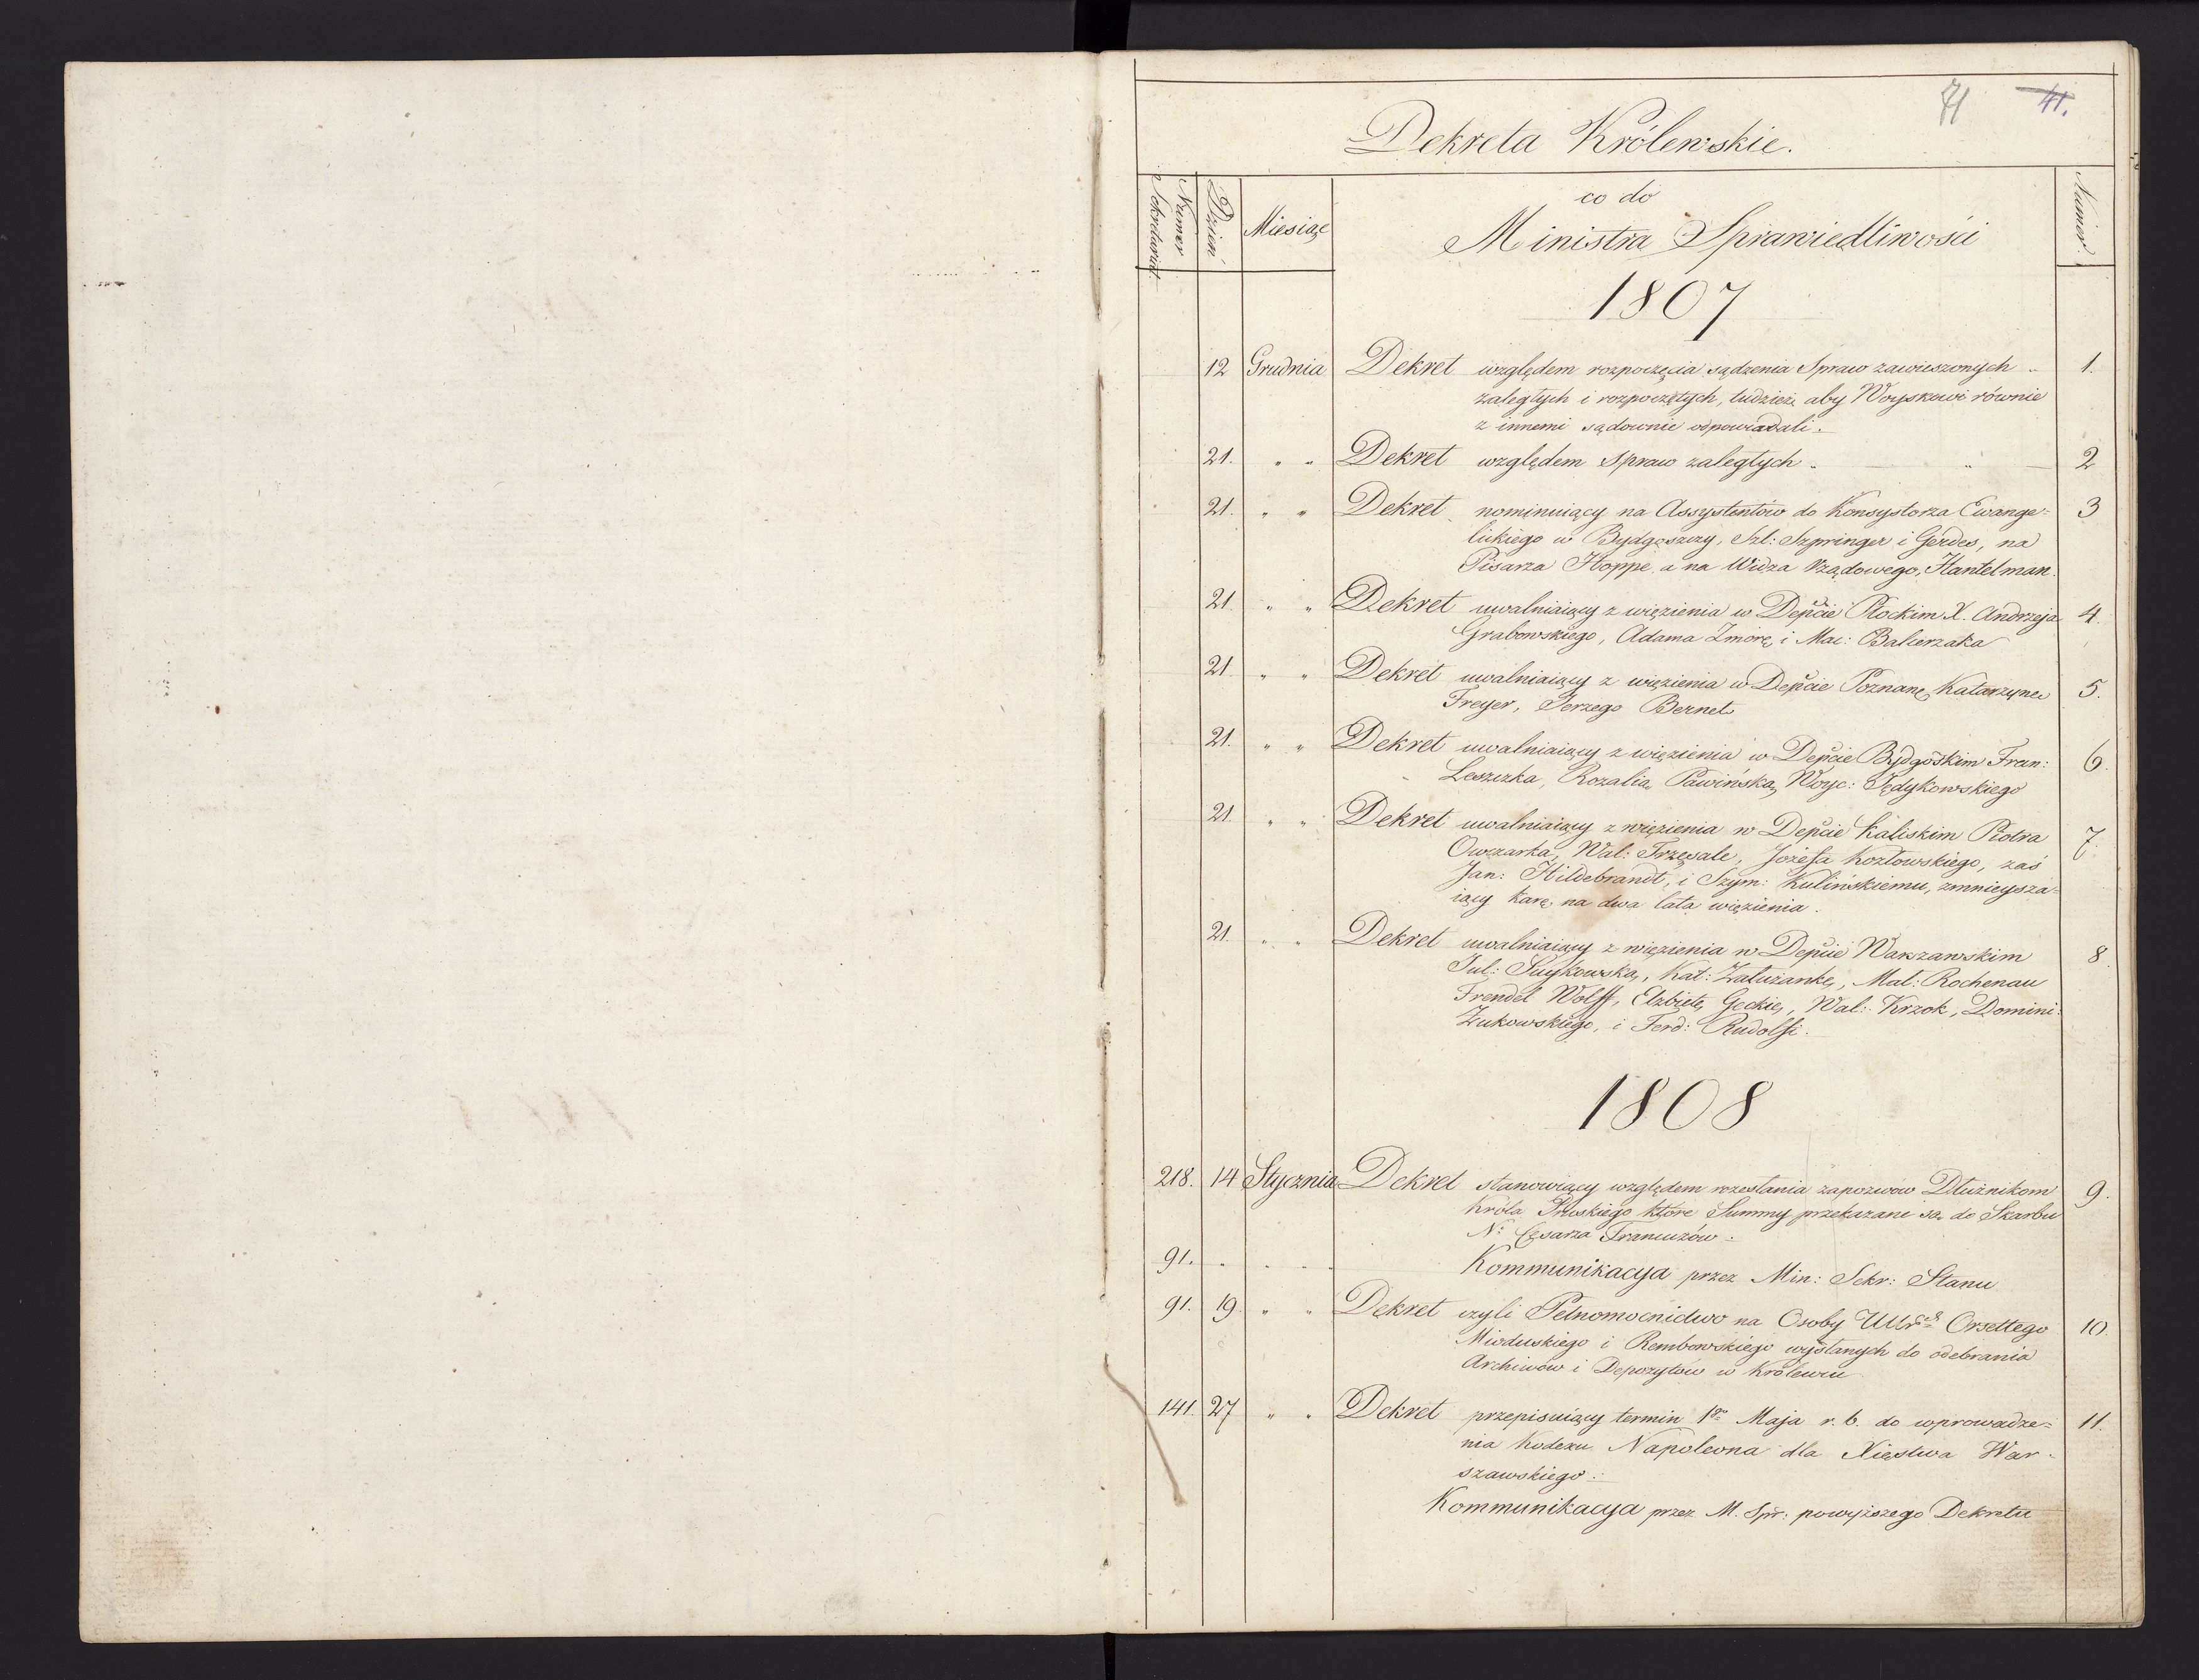 71 41.
Dekreta Królewskie.
Numer Sekretariat
Dzień
Miesiąc
co do
Ministra Sprawiedliwości
Numer
1807
12 Grudnia Dekret względem rozpoczęcia sądzenia Spraw zawieszonych 1.
zaległych i rozpoczętych, tudzież aby Woyskowi równie
z innemi sądownie odpowiadali.
21. " " Dekret względem Spraw zaległych. " 2
21. " " Dekret nominuiący na Assystentów do Konsystorza Ewange= 3
lickiego w Bydgoszczy, Szl: Szpringer i Gerdes, na
Pisarza Hoppe a na Widza Rządowego, Hantelman.
21. " " Dekret uwalniaiący z więzienia w Depcie Płockim X. Andrzeja 4.
Grabowskiego, Adama Zmorę, i Mac: Balcerzaka
21 " " Dekret uwalniaiący z więzienia w Depcie Poznanę Katarzynę 5.
Freyer, Jerzego Bernet
21. " " Dekret uwalniaiący z więzienia w Depcie Bydgoskim Fran: 6.
Leszczka, Rozalią Pawińską, Woyc: Pędykowskiego
21. " " Dekret uwalniaiący z więzienia w Depcie Kaliskim Piotra 7.
Owczarka, Wal: Trzęsale, Józefa Kozłowskiego, zaś
Jan: Hildebrandt, i Szym: Kulińskiemu, zmnieysza=
iący karę na dwa lata więzienia.
21. " " Dekret uwalniaiący z więzienia w Depcie Warszawskim 8.
Jul: Suykowską, Kat: Załużankę, Mat: Rochenau
Frendel Wolff, Elzbietę Geckie, Wal: Krzok, Domini:
Żukowskiego, i Ferd: Rudolfi.
1808
218. 14 Stycznia Dekret stanowiący względem rozesłania zapozwów Dłużnikom 9.
Króla Pruskiego które Summy przekazane są do Skarbu
N: Cesarza Francuzów.
91. " " " Kommunikacya przez Min: Sekr: Stanu
91. 19. " " Dekret czyli Pełnomocnictwo na Osoby Ur Orsettego 10.
Mioduskiego i Rembowskiego wysłanych do odebrania
Archiwów i Depozytów w Królewcu
141. 27 " " Dekret przepisuiący termin 1go Maja r. b. do wprowadze= 11.
nia Kodexu Napoleona dla Xięstwa War=
szawskiego.
Kommunikacya przez M. Spr: powyższego Dekretu